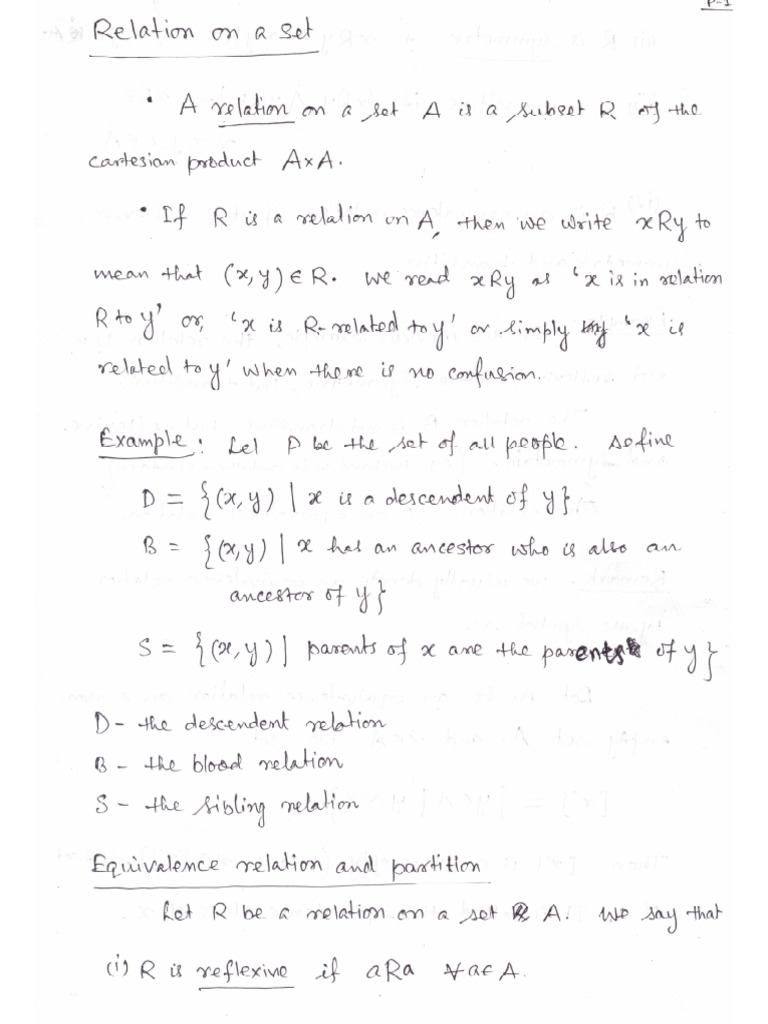 P-1
Relation on a set
• A relation on a set A is a subset R of the
cartesian product A×A.
• If R is a relation on A, then we write xRy to
mean that (x,y) ∈ R. We read xRy as 'x is in relation
R to y' or, 'x is R-related to y' or simply 'x is
related to y' when there is no confusion.
Example: Let P be the set of all people. Define
D = {(x,y) | x is a descendent of y}
B = {(x,y) | x has an ancestor who is also an
ancestor of y}
S = {(x,y) | parents of x are the parents of y}
D - the descendent relation
B - the blood relation
S - the sibling relation
Equivalence relation and partition
Let R be a relation on a set A. We say that
(i) R is reflexive if aRa ∀ a∈A.